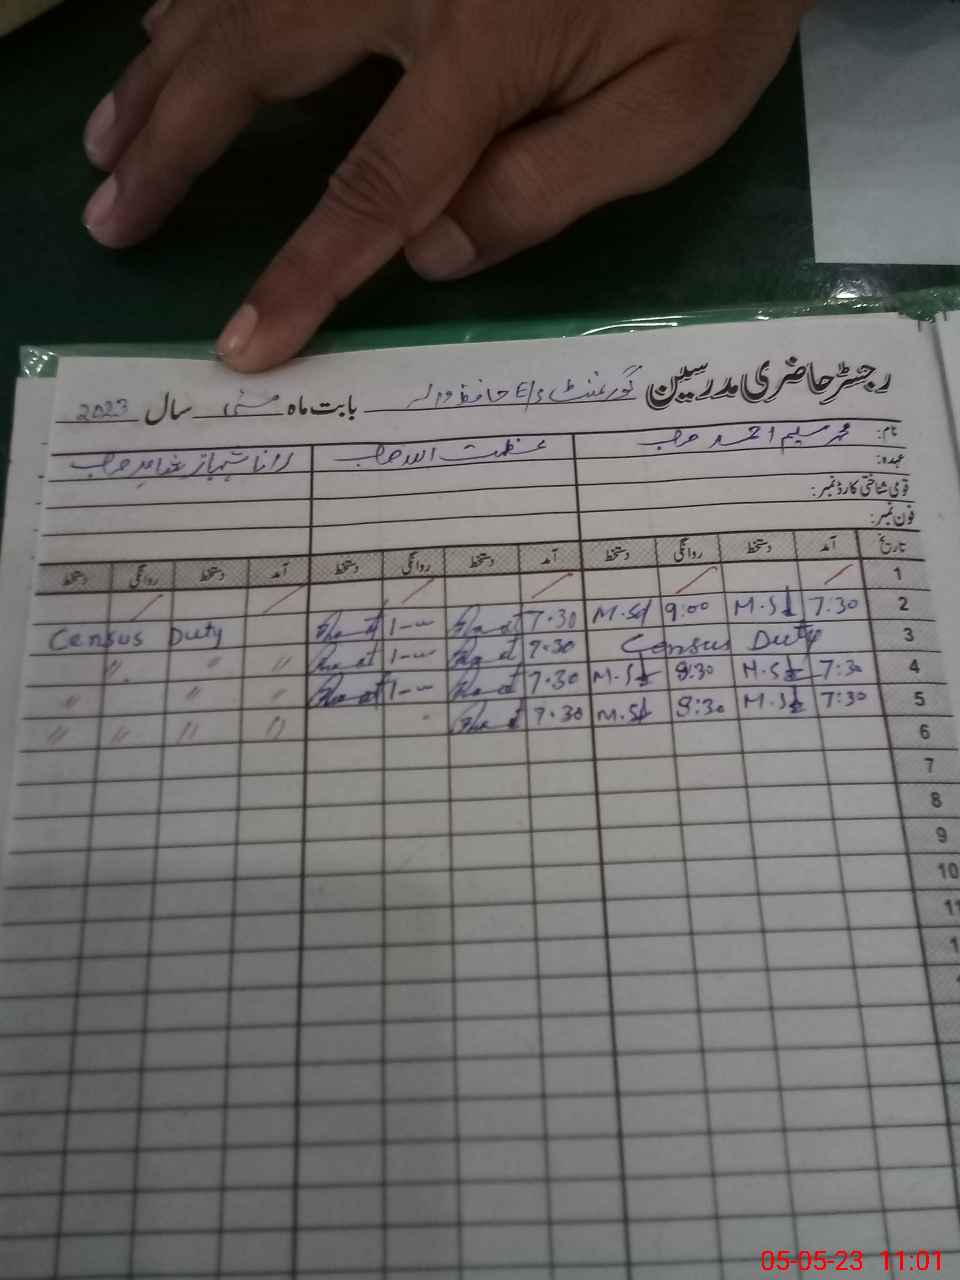 رجسٹر حاضری مدرسین گورنمنٹ E/S حافظ والہ بابت ماہ مئی سال 2023
نام: محمد سلیم احمد صاحب عظمت اللہ صاحب رانا شہباز صاحب
عہدہ:
قومی شناختی کارڈ نمبر:
فون نمبر:
تاریخ آمد دستخط روانگی دستخط آمد دستخط روانگی دستخط آمد دستخط روانگی دستخط
1
2 7:30 M.Sd 9:00 M.Sd 7.30 1-00 Census Duty
3 Census Duty 7.30 1-00 " " "
4 7:30 M.Sd 8:30 M.Sd 7.30 1-00 " " "
5 7:30 M.Sd 8:30 M.Sd 7.30 " " " "
6
7
8
9
10
11
1
05-05-23 11:01